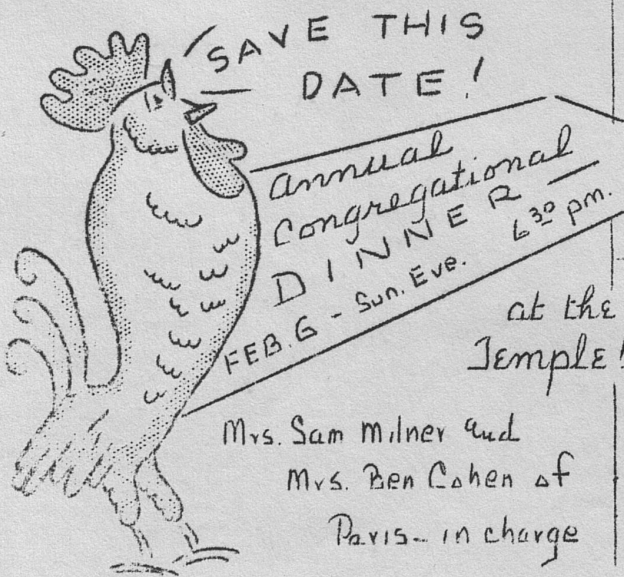 SAVE THIS
DATE!
Annual
Congregational
DINNER —
FEB. 6 - Sun. Eve. 6³⁰ pm.
at the
Temple!
Mrs. Sam Milner and
Mrs. Ben Cohen of
Paris - in charge